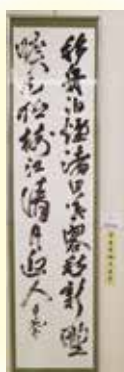 移舟泊煙渚日暮客愁新野
曠天低樹江清月近人